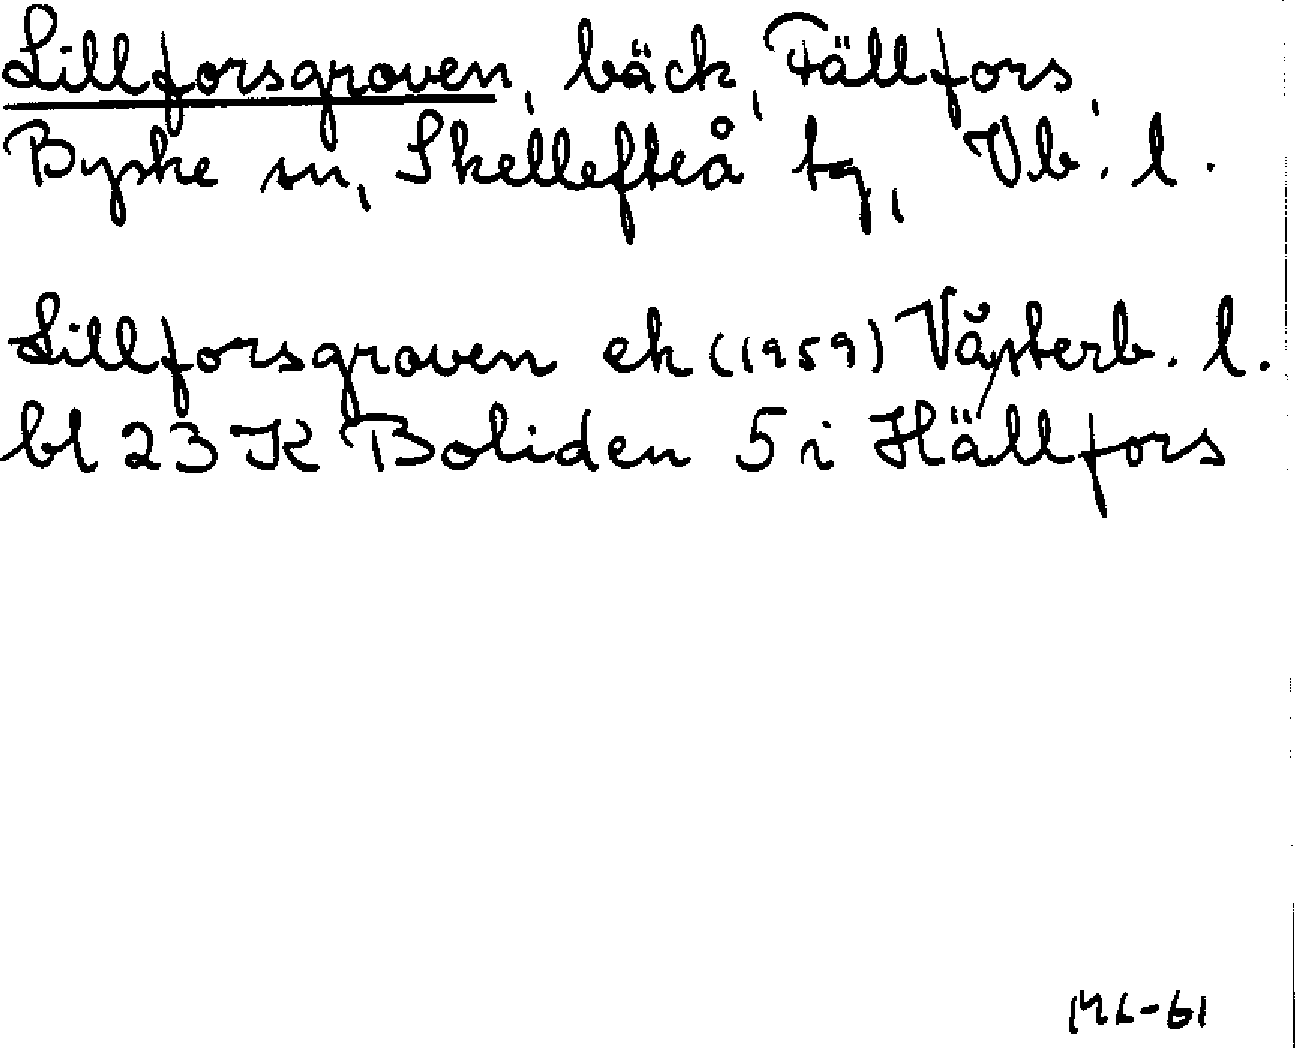 Lillforsgroven, bäck, Fällfors,
Byske sn, Skellefteå tg, Vb. l.
Lillforsgroven ek (1959) Västerb. l.
bl 23 K Boliden 5 i Hällfors